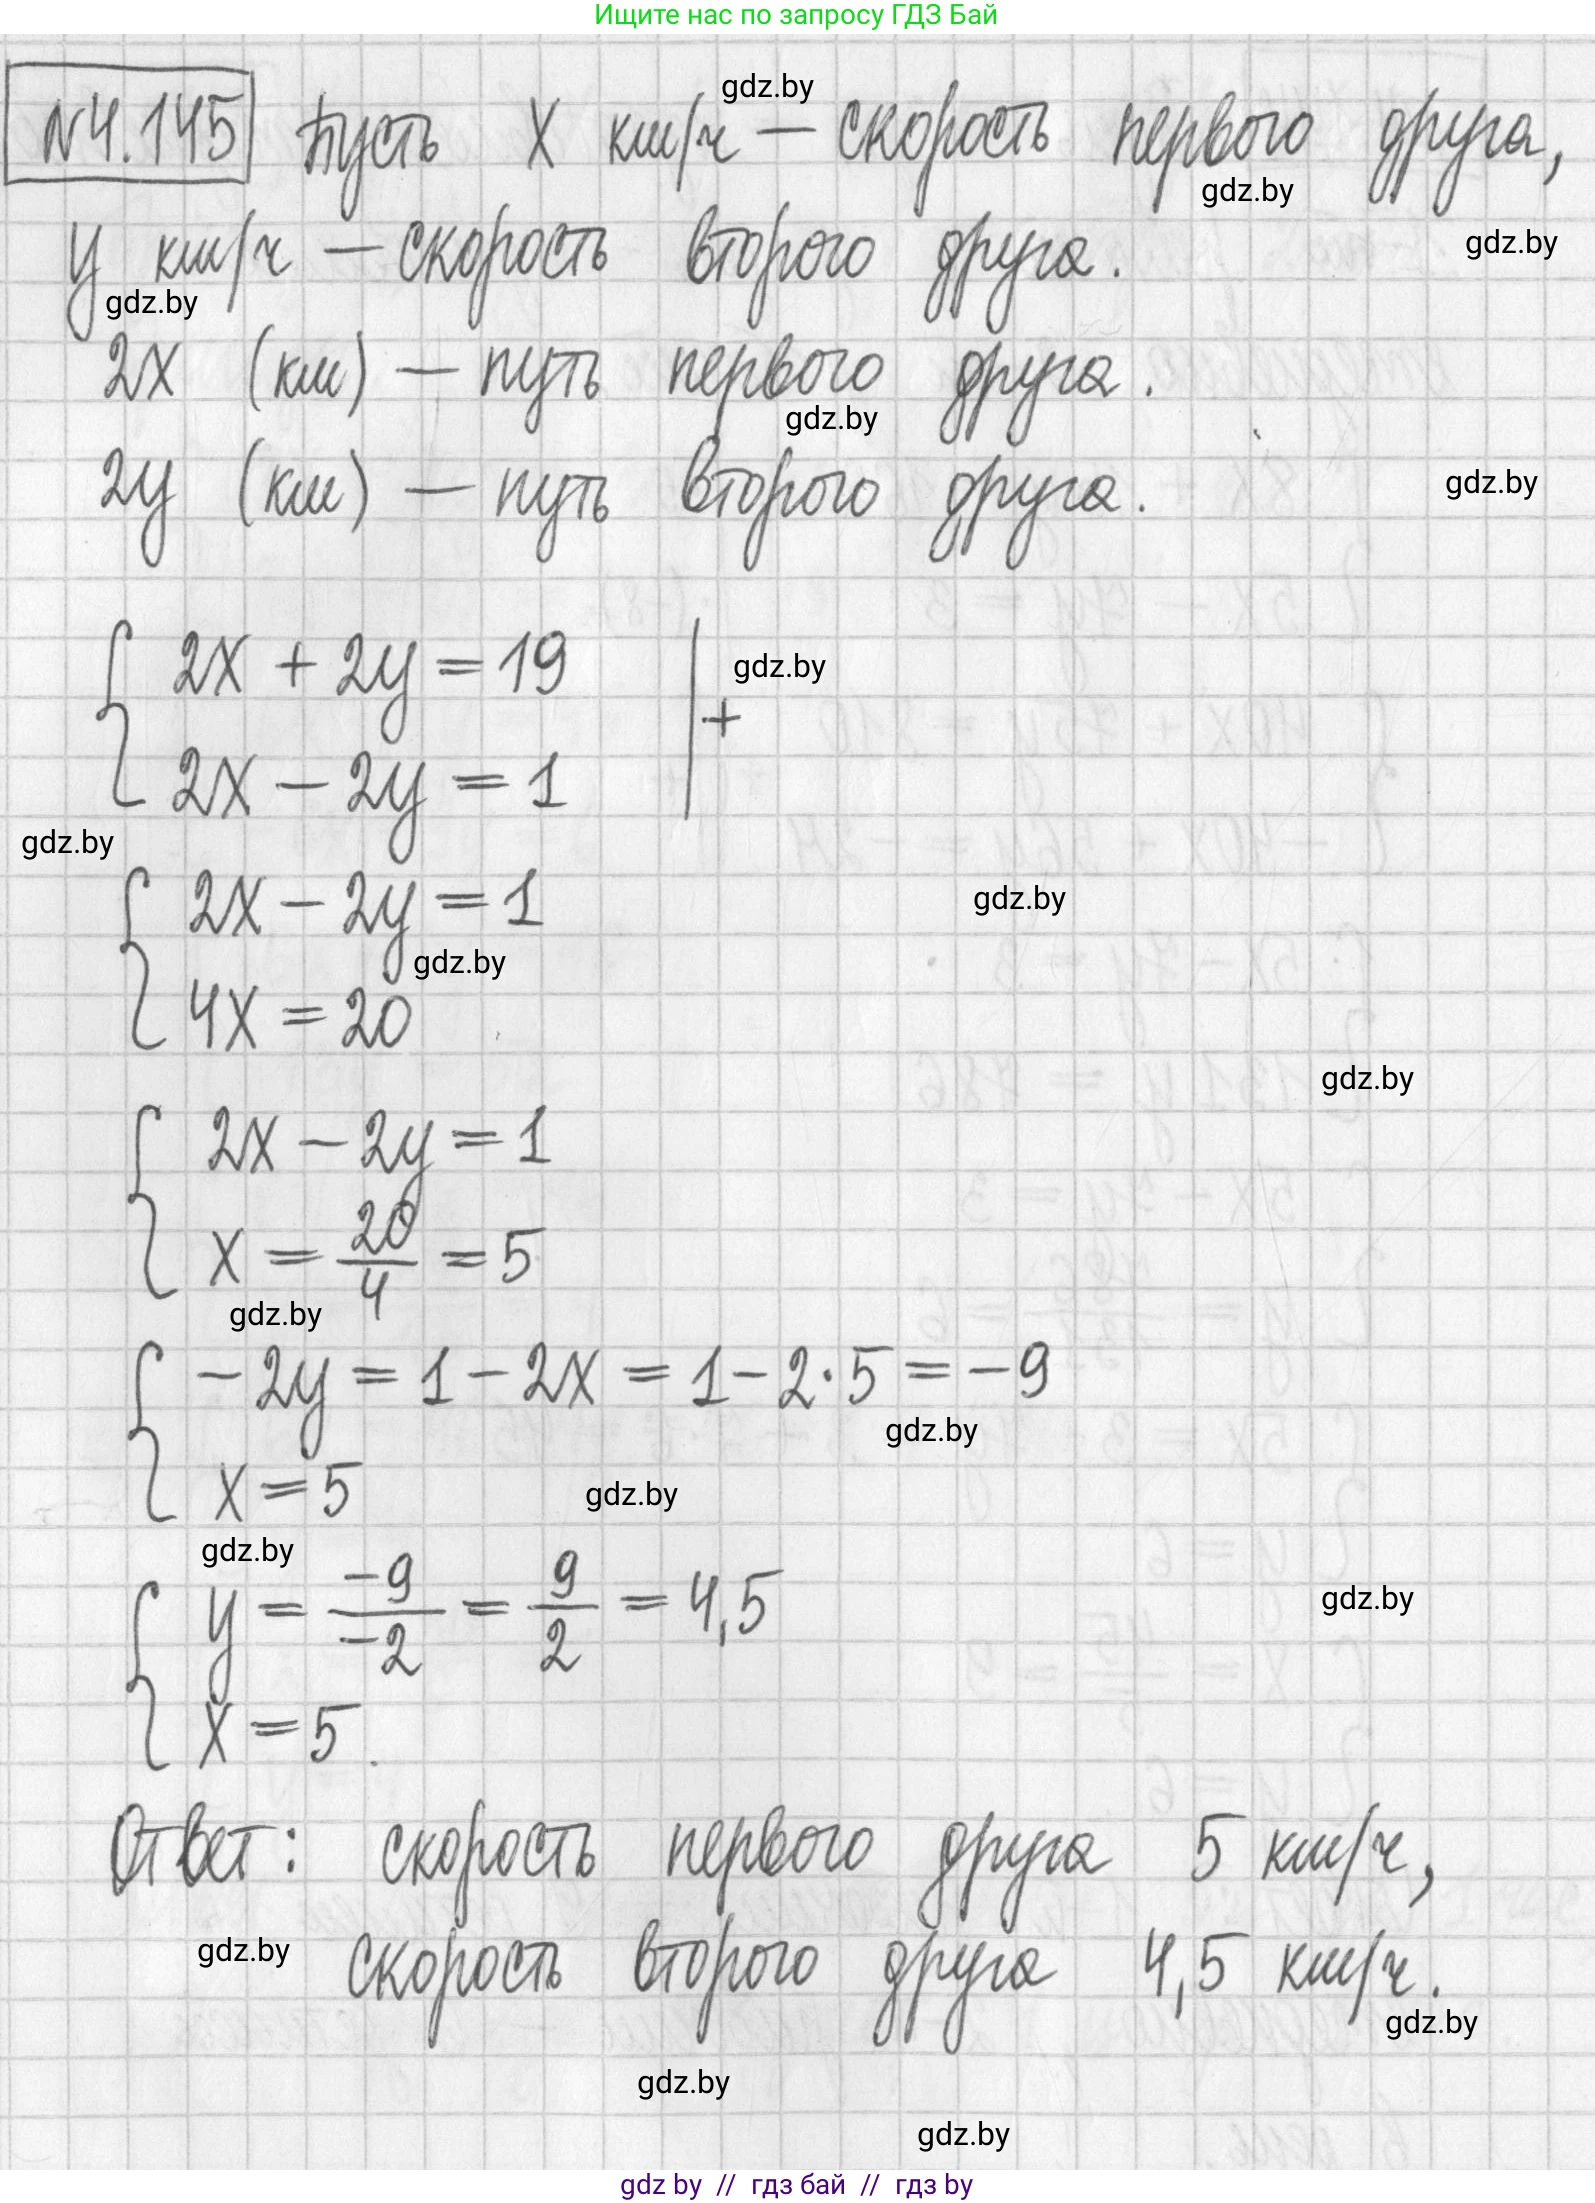 Ищите нас по запросу ГДЗ Бай
gdz.by
N4.145 Пусть x км/ч — скорость первого друга,
gdz.by
y км/ч — скорость второго друга.
gdz.by
gdz.by
2x (км) — путь первого друга.
gdz.by
2y (км) — путь второго друга.
gdz.by
2x + 2y = 19
gdz.by
+
2x − 2y = 1
gdz.by
2x − 2y = 1
gdz.by
gdz.by
4x = 20
gdz.by
2x − 2y = 1
x = 20/4 = 5
gdz.by
−2y = 1 − 2x = 1 − 2·5 = −9
gdz.by
x = 5
gdz.by
gdz.by
y = −9/−2 = 9/2 = 4,5
gdz.by
x = 5.
Ответ: скорость первого друга 5 км/ч,
gdz.by
скорость второго друга 4,5 км/ч.
gdz.by
gdz.by
gdz.by
gdz by // гдз бай // gdz by